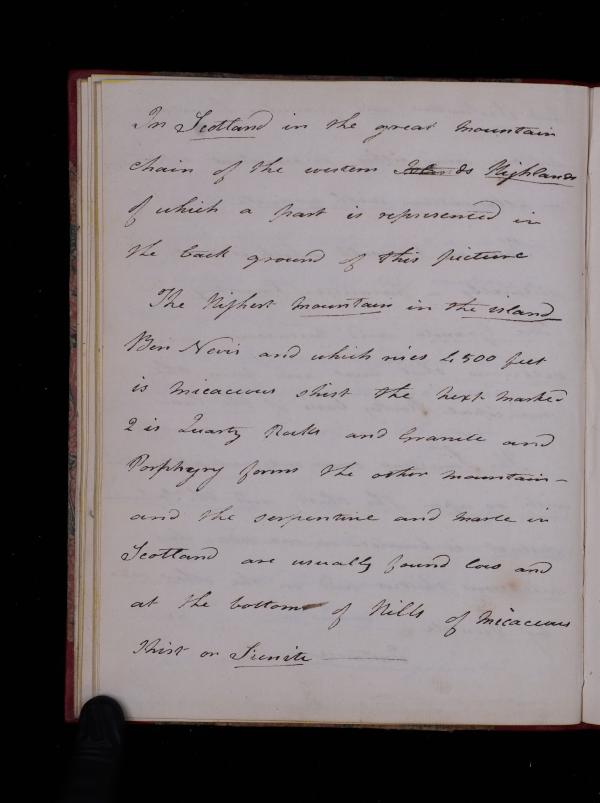 In Scotland in the great mountain
chain of the western Islands Highlands
of which a part is represented in
the back ground of this picture
The highest mountain in the island
Ben Nevis and which rises 4,500 feet
is micaceous shist the next marked
2 is Quartz Rocks and Granite and
Porphyry forms the other mountain –
and the serpentine and marle in
Scotland are usually found low and
at the bottom of Hills of Micaceous
Shist or Sienite